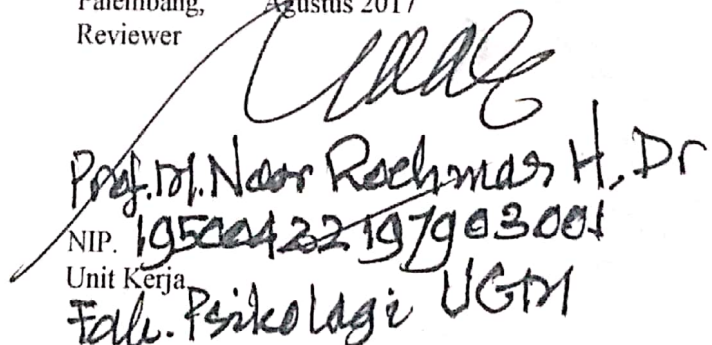 Palembang, Agustus 2017
Reviewer
Prof. M. Noor Rochman H, Dr
NIP. 19500422197903001
Unit Kerja
Fak. Psikologi UGM